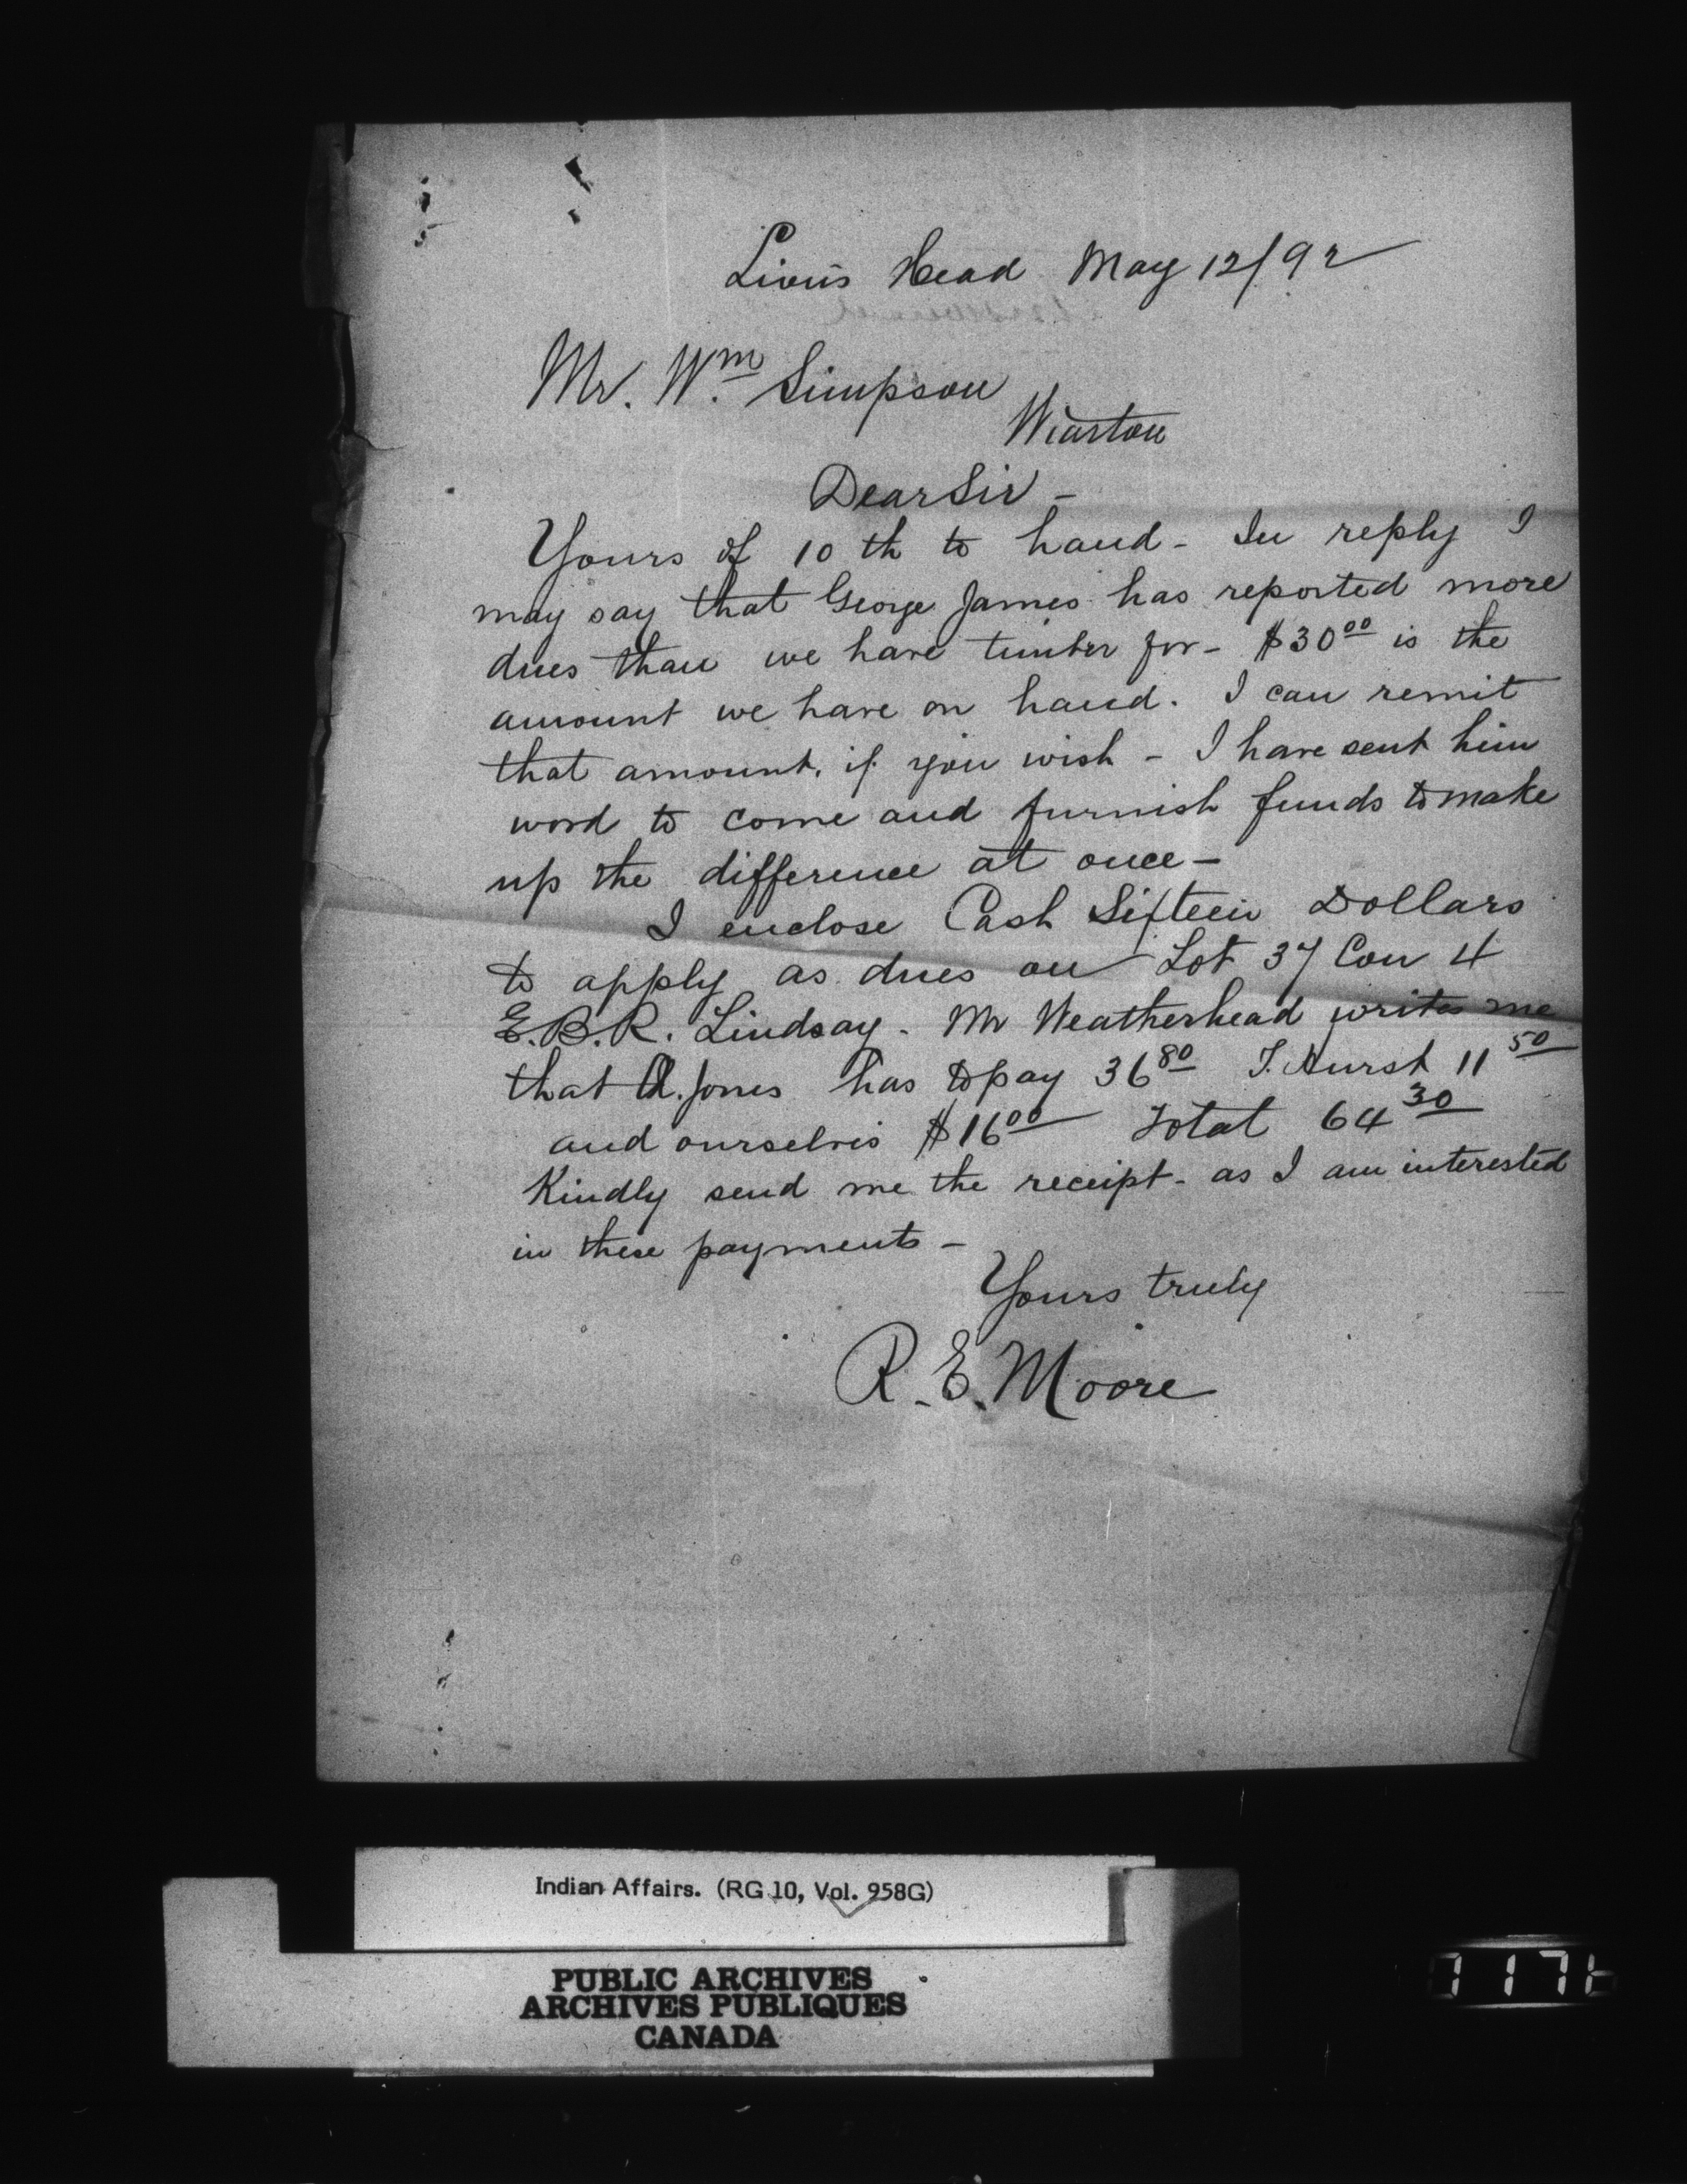 Lion's Head May 12/92
Mr. Wm Simpson
Wiarton
Dear Sir -
Yours of 10 th to hand - In reply I
may say that George James has reported more
dues than we have timber for - $30 00 is the
amount we have on hand. I can remit
that amount, if you wish - I have sent him
word to come and furnish funds to make
up the difference at once -
I enclose Cash Sixteen Dollars
to apply as dues on Lot 37 Con 4
E.B.R. Lindsay. Mr Weatherhead writes me
that A. Jones has to pay 36 80 T. Hurst 11 50
and ourselves $16 00 Total 64 30
Kindly send me the receipt - as I am interested
in these payments -
Yours truly
R. E. Moore
Indian Affairs. (RG 10, Vol. 958G)
PUBLIC ARCHIVES
ARCHIVES PUBLIQUES
CANADA